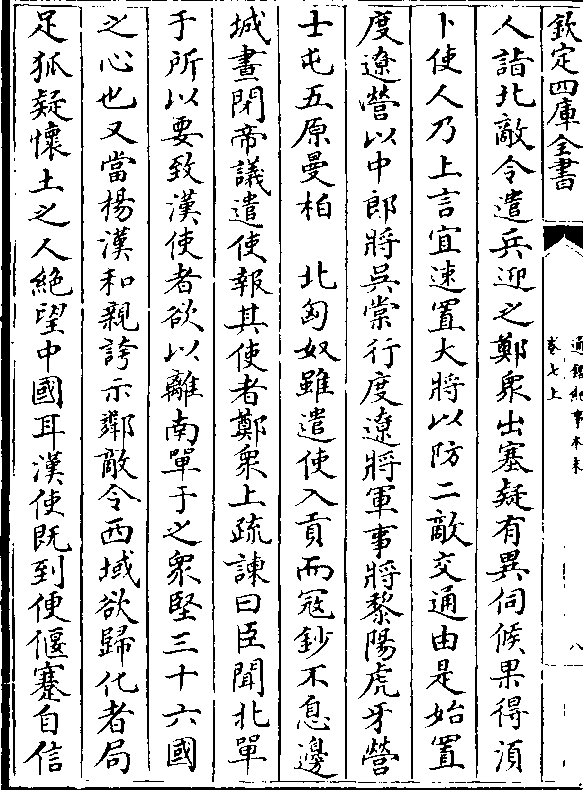 欽定四庫全書
通鑑紀事本末
卷七上
八
人詣北敵令遣兵迎之鄭衆出塞疑有異伺候果得湏
卜使人乃上言宜速置大將以防二敵交通由是始置
度遼營以中郎將吳棠行度遼將軍事將黎陽虎牙營
士屯五原曼柏　北匈奴雖遣使入貢而冦鈔不息邊
城晝閉帝議遣使報其使者鄭衆上疏諫曰臣聞北單
于所以要致漢使者欲以離南單于之衆堅三十六國
之心也又當揚漢和親誇示鄰敵令西域欲歸化者局
足狐疑懷土之人絶望中國耳漢使既到便偃蹇自信